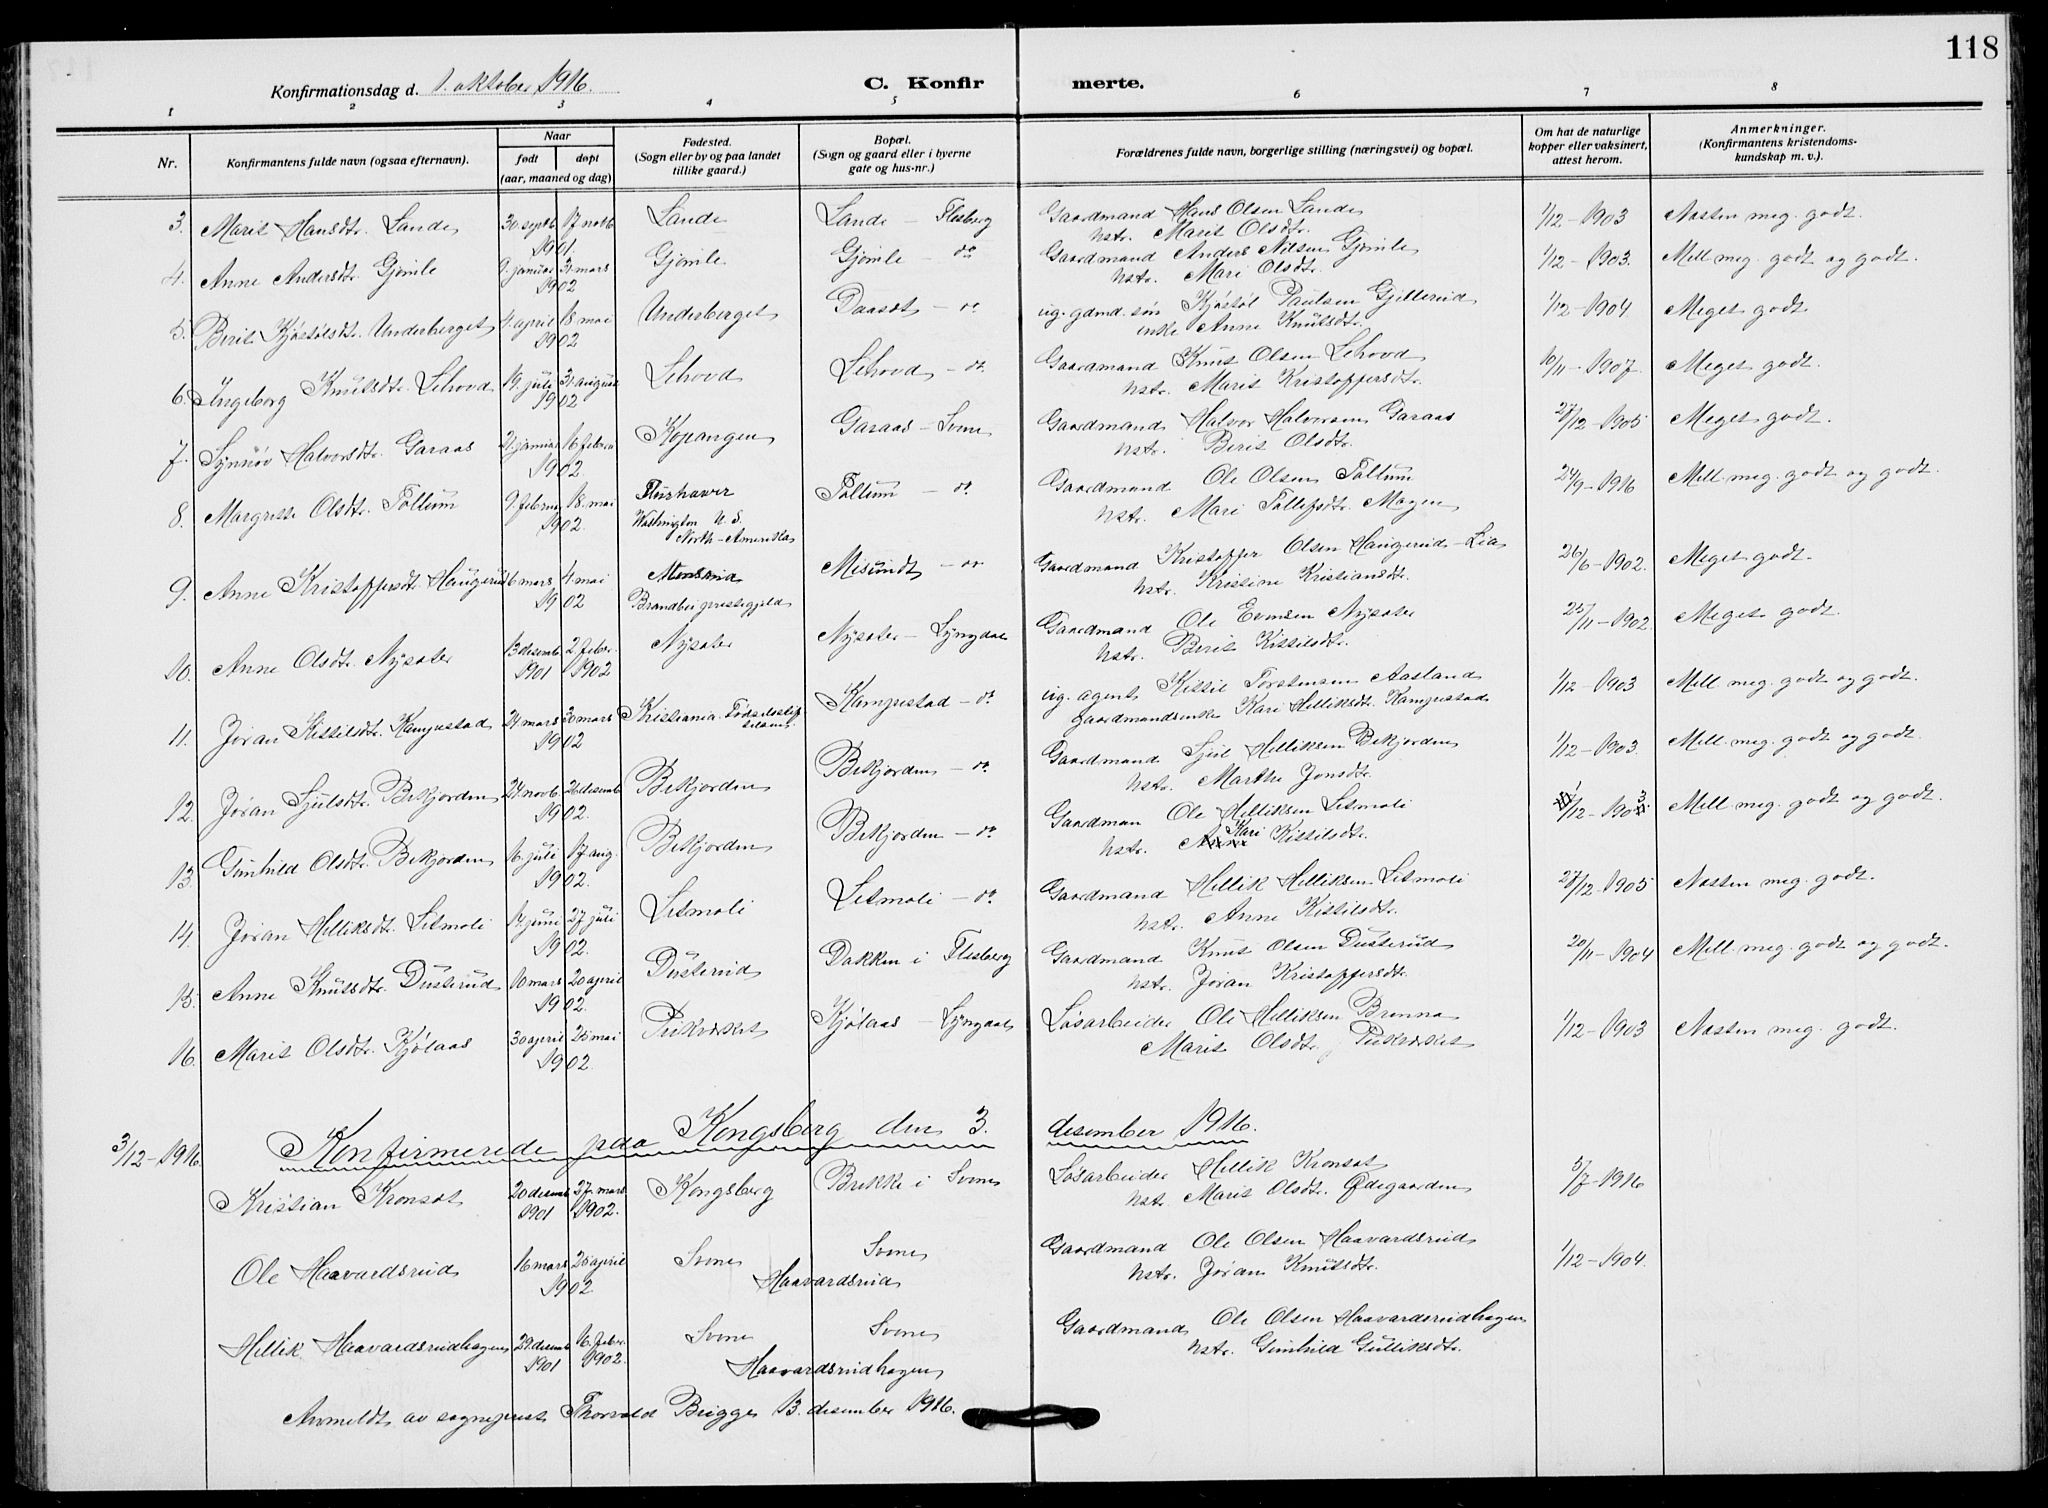 118
Konfirmationsdag d. 1. oktober 1916.
C. Konfirmerte.
1 2 3 4 5 6 7 8
Nr.
Konfirmantens fulde navn (ogsaa efternavn).
Naar
født døpt
(aar, maaned og dag)
Fødested.
(Sogn eller by og paa landet
tillike gaard.)
Bopæl.
(Sogn og gaard eller i byerne
gate og hus-nr.)
Forældrenes fulde navn, borgerlige stilling (næringsvei) og bopæl.
Om hat de naturlige
kopper eller vaksinert,
attest herom.
Anmerkninger.
(Konfirmantens kristendoms-
kundskap m. v.).
3. Marit Hansdtr. Lande 30. septb. 17 novb. Lande Lande - Flesberg Gaardmand Hans Olsen Lande 1/12-1903 Næsten meg. godt.
1901 hstr. Marit Olsdtr.
4. Anne Andersdtr. Gjømle 9. januar 31. mars Gjømle Gjømle - do Gaardmand Anders Nilsen Gjømle 1/12-1903. Mell. meg. godt og godt.
1902 hstr. Mari Olsdtr.
5. Berit Kjøstolsdtr. Underberget 4. april 18. mai Underberget Daaset - do ug. gdmd. søn Kjøstøl Paulsen Gjellerud 1/12-1904 Meget godt
1902 enke Anne Knutsdtr.
6. Ingeborg Knutsdtr. Lehovd 19. juli 31. august Lehovd Lehovd - do Gaardmand Knut Olsen Lehovd 10/11-1907. Meget godt.
1902 hstr. Marit Kristoffersdtr.
7. Synnøv Halvorsdtr. Garaas 21. januar 16. februar Kopangen Garaas - Svene Gaardmand Halvor Halvorsen Garaas 27/12-1905 Meget godt.
1902 hstr. Berit Olsdtr.
8. Margrethe Olsdtr. Tollum 9. februar 18. mai Tollum - do Gaardmand Ole Olsen Tollum 24/9-1916 Mell. meg. godt og godt.
1902. Washington U. S. hstr. Mari Tollefsdtr. Mogen
North-Amerika
9. Anne Kristoffersdtr. Haugerud 6. mars 4. mai Misundt - do Gaardmand Kristoffer Olsen Haugerud-Lia 26/6-1902. Meget godt.
1902 Brandbu prestegjeld hstr. Kristine Kristiansdtr.
10. Anne Olsdtr. Nysæter 13 desemb. 2. febr. Nysæter Nysæter - Lyngdal Gaardmand Ole Evensen Nysæter 25/11-1902. Meget godt.
1901 1902 hstr. Berit Kittilsdtr.
11. Jøran Kittilsdtr. Kampestad 24. mars 30 mars Kristiania Fødselsstiftelsen. Kampestad - do ug. agent Kittil Torstensen Aasland 1/12-1903 Mell. meg. godt og godt.
1902 gaardmandsenke Kari Helliksdtr. Kampestad
12. Jøran Sjulsdtr. Bekjorden 24. novb. 26 desemb. Bekjorden Bekjorden - do Gaardmand Sjul Helliksen Bekjorden 1/12-1903. Mell. meg. godt og godt.
1902. hstr. Marthe Jonsdtr.
13. Gunhild Olsdtr. Bekjorden 16. juli 17 aug. Bekjorden Bekjorden - do Gaardman Ole Helliksen Letmoli 1/12-1903. Mell. meg. godt og godt.
1902. hstr. Kari Kittilsdtr.
14. Jøran Helliksdtr. Letmoli 14. juni 27 juli Letmoli Letmoli - do Gaardmand Hellik Helliksen Letmoli 27/12-1905 Næsten meg. godt.
1902. hstr. Anne Kittilsdtr.
15. Anne Knutsdtr. Dusterud 10 mars 20 april Dusterud Dakken i Flesberg Gaardmand Knut Olsen Dusterud 20/11-1904 Mell. meg. godt og godt.
1902. hstr. Jøran Kristoffersdtr.
16. Marit Olsdtr. Kjølaas 30 april 25 mai Pukverket Kjølaas - Lyngdal Løsarbeider Ole Helliksen Brenna 1/12-1903 Næsten meg. godt.
1902. Marit Olsdtr. Pukverket
3/12-1916. Konfirmerede paa Kongsberg den 3. desember 1916.
Kristian Kronsæt 20 desemb. 27. mars Kongsberg Brekke i Svene Løsarbeider Hellik Kronsæt 5/7-1916
1901 1902. hstr. Marit Olsdtr. Ødegaarden
Ole Haavardsrud 16 mars 25 april Svene Svene Gaardmand Ole Olsen Haavardsrud 1/12-1904.
1902 Haavardsrud hstr. Jøran Knutsdtr.
Hellik Haavardsrudhagen 29. desemb. 16. febr. Svene Svene Gaardmand Ole Olsen Haavardsrudhagen
1901 1902. Haavardsrudhagen hstr. Gunhild Gulliksdtr.
Anmeldt av sogneprest Thorvald Brigge 13. desember 1916.